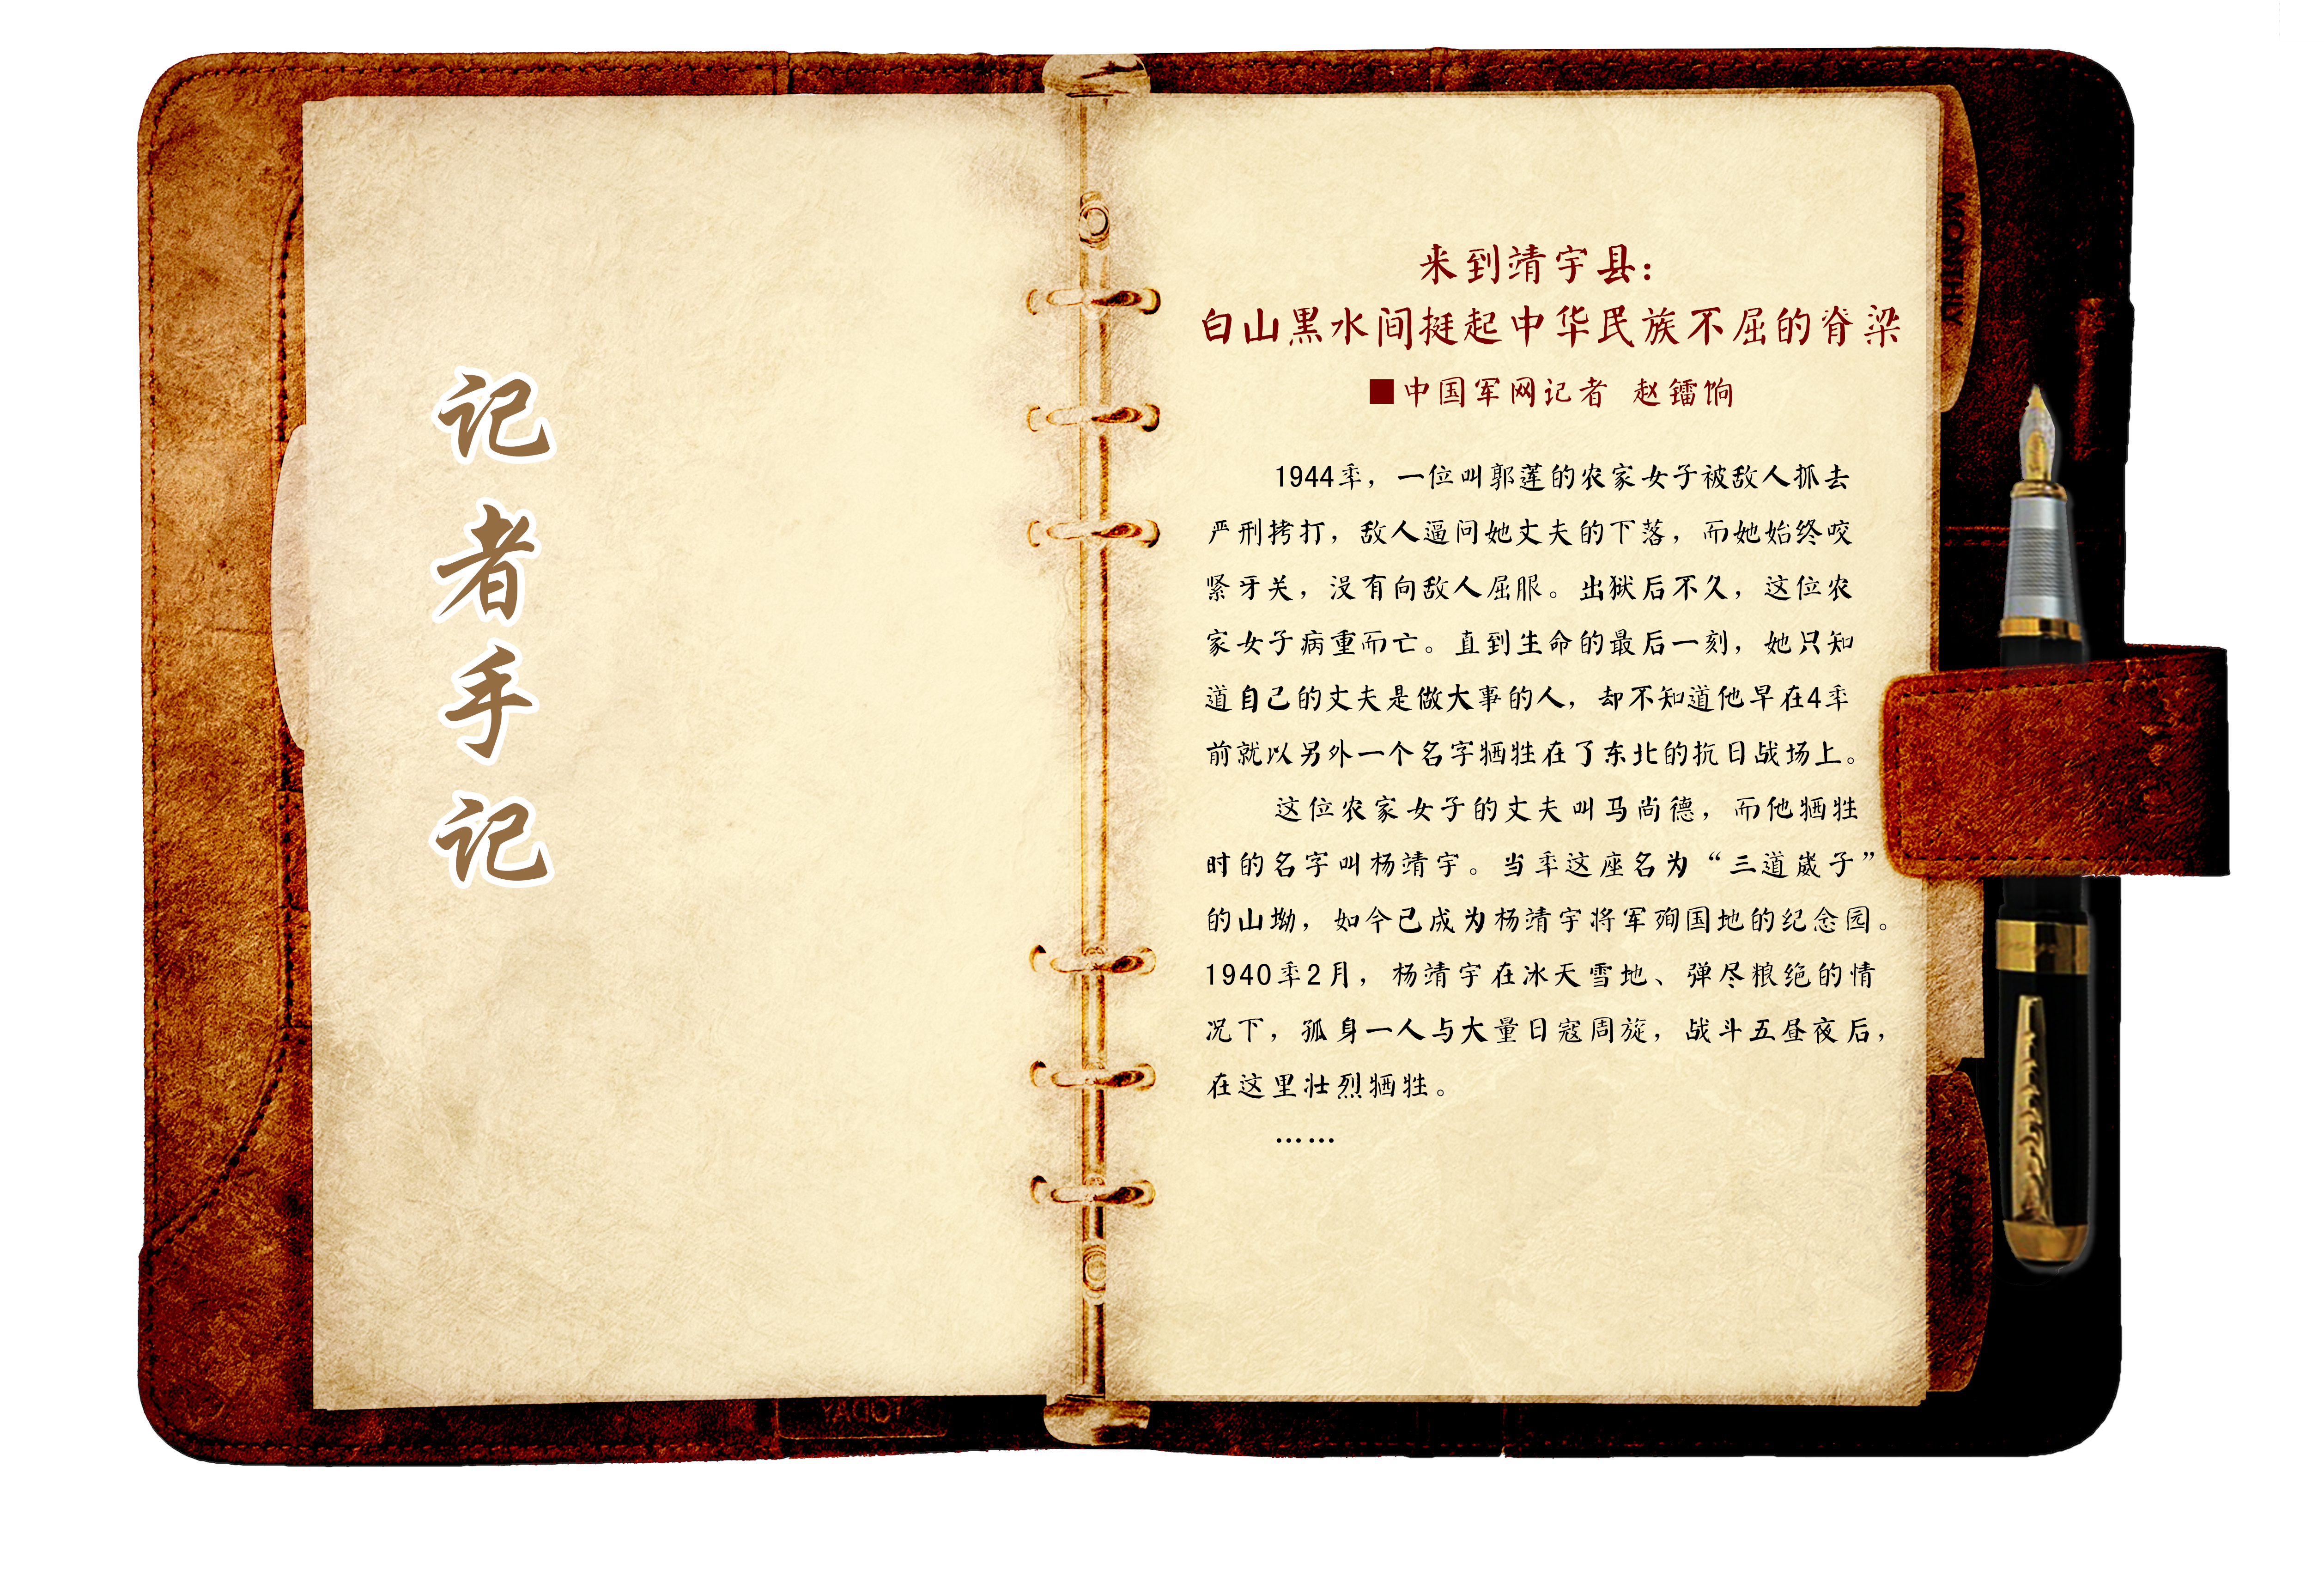 记者手记
来到靖宇县：
白山黑水间挺起中华民族不屈的脊梁
■中国军网记者 赵镭饷
1944年，一位叫郭莲的农家女子被敌人抓去
严刑拷打，敌人逼问她丈夫的下落，而她始终咬
紧牙关，没有向敌人屈服。出狱后不久，这位农
家女子病重而亡。直到生命的最后一刻，她只知
道自己的丈夫是做大事的人，却不知道他早在4年
前就以另外一个名字牺牲在了东北的抗日战场上。
这位农家女子的丈夫叫马尚德，而他牺牲
时的名字叫杨靖宇。当年这座名为“三道崴子”
的山坳，如今已成为杨靖宇将军殉国地的纪念园。
1940年2月，杨靖宇在冰天雪地、弹尽粮绝的情
况下，孤身一人与大量日寇周旋，战斗五昼夜后，
在这里壮烈牺牲。
……
MONTHLY
TODAY